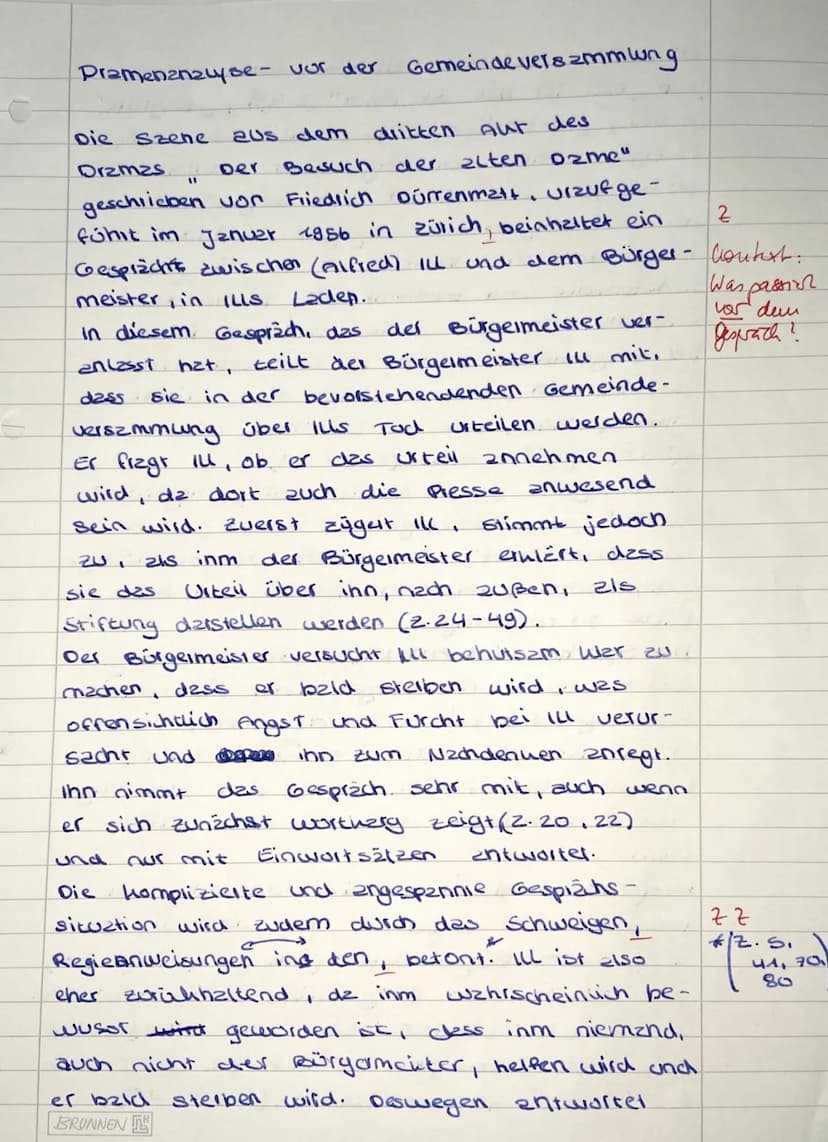 Dramenanalyse - vor der Gemeindeversammlung
Die Szene aus dem dritten Akt des
Dramas "Der Besuch der alten Dame"
geschrieben von Friedrich Dürrenmatt, uraufge-
führt im Januar 1956 in Zürich, beinhaltet ein
Gespräch zwischen (Alfred) Ill und dem Bürger-
meister, in Ills Laden.
In diesem Gespräch, das der Bürgermeister ver-
anlasst hat, teilt der Bürgermeister Ill mit,
dass sie in der bevorstehendenden Gemeinde-
versammlung über Ills Tod urteilen werden.
Er fragt Ill, ob er das Urteil annehmen
wird, da dort auch die Presse anwesend
sein wird. Zuerst zögert Ill, stimmt jedoch
zu, als ihm der Bürgermeister erklärt, dass
sie das Urteil über ihn, nach außen, als
Stiftung darstellen werden (Z. 24-49).
Der Bürgermeister versucht Ill behutsam klar zu
machen, dass er bald sterben wird, was
offensichtlich Angst und Furcht bei Ill verur-
sacht und ihn zum Nachdenken anregt.
Ihn nimmt das Gespräch sehr mit, auch wenn
er sich zunächst wortkarg zeigt (Z. 20, 22)
und nur mit Einwortsätzen antwortet.
Die komplizierte und angespannte Gesprächs-
situation wird zudem durch das Schweigen,
Regieanweisungen in den, betont.* Ill ist also
eher zurückhaltend, da ihm wahrscheinlich be-
wusst geworden ist, dass ihm niemand,
auch nicht der Bürgermeister, helfen wird und
er bald sterben wird. Deswegen antwortet
Z
Kontext:
Was passiert
vor dem
Gespräch?
Z Z
*(Z. 5,
41, 70,
80)
BRUNNEN